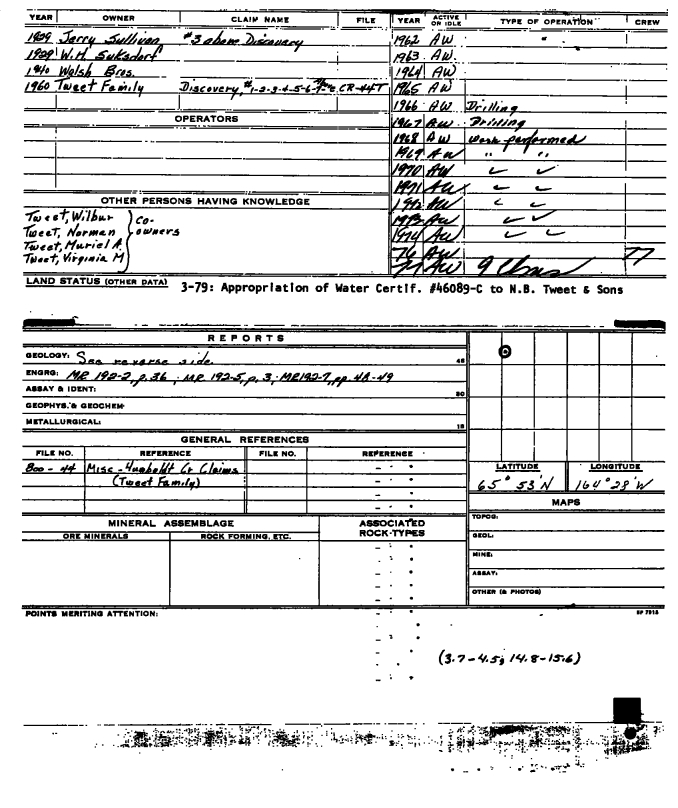 YEAR OWNER CLAIM NAME FILE YEAR ACTIVE OR IDLE TYPE OF OPERATION CREW
1909 Jerry Sullivan #3 above Discovery 1962 AW "
1909 W.H. Suksdorf 1963 AW
1940 Walsh Bros. 1964 AW
1960 Tweet Family Discovery, #1-2-3-4-5-6-7 CR-44T 1965 AW
1966 AW Drilling
OPERATORS 1967 AW Drilling
1968 AW work performed
1969 AW " "
1970 AW ✓ ✓
1971 AW ✓ ✓
OTHER PERSONS HAVING KNOWLEDGE 1972 AW ✓ ✓
Tweet, Wilbur } co-owners 1973 AW ✓ ✓
Tweet, Norman 1974 AW ✓ ✓
Tweet, Muriel A. 76 AW 77
Tweet, Virginia M 77 AW 9 Clms
LAND STATUS (OTHER DATA) 3-79: Appropriation of Water Certif. #46089-C to N.B. Tweet & Sons
REPORTS
GEOLOGY: See reverse side.
ENGRG: MR 192-2, p.36; MR 192-5, p. 3; MR192-7, pp. 48-49
ASSAY & IDENT:
GEOPHYS. & GEOCHEM
METALLURGICAL:
GENERAL REFERENCES
FILE NO. REFERENCE FILE NO. REFERENCE
800-44 Misc - Humboldt Cr Claims
(Tweet Family)
LATITUDE LONGITUDE
65° 53'N 164° 28'W
MAPS
MINERAL ASSEMBLAGE ASSOCIATED ROCK-TYPES
ORE MINERALS ROCK FORMING, ETC.
TOPOG:
GEOL:
MINE:
ASSAY:
OTHER (& PHOTOS)
POINTS MERITING ATTENTION:
(3.7-4.5; 14.8-15.6)